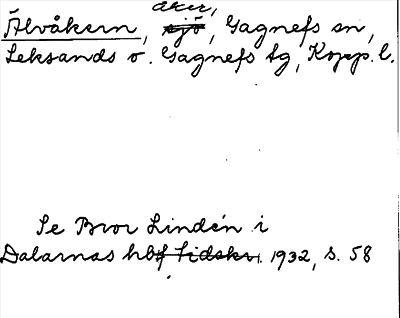 åker,
Älvåkern, sjö, Gagnefs sn,
Leksands o. Gagnefs tg, Kopp. l.
Se Bror Lindén i
Dalarnas hbf tidskr. 1932, s. 58